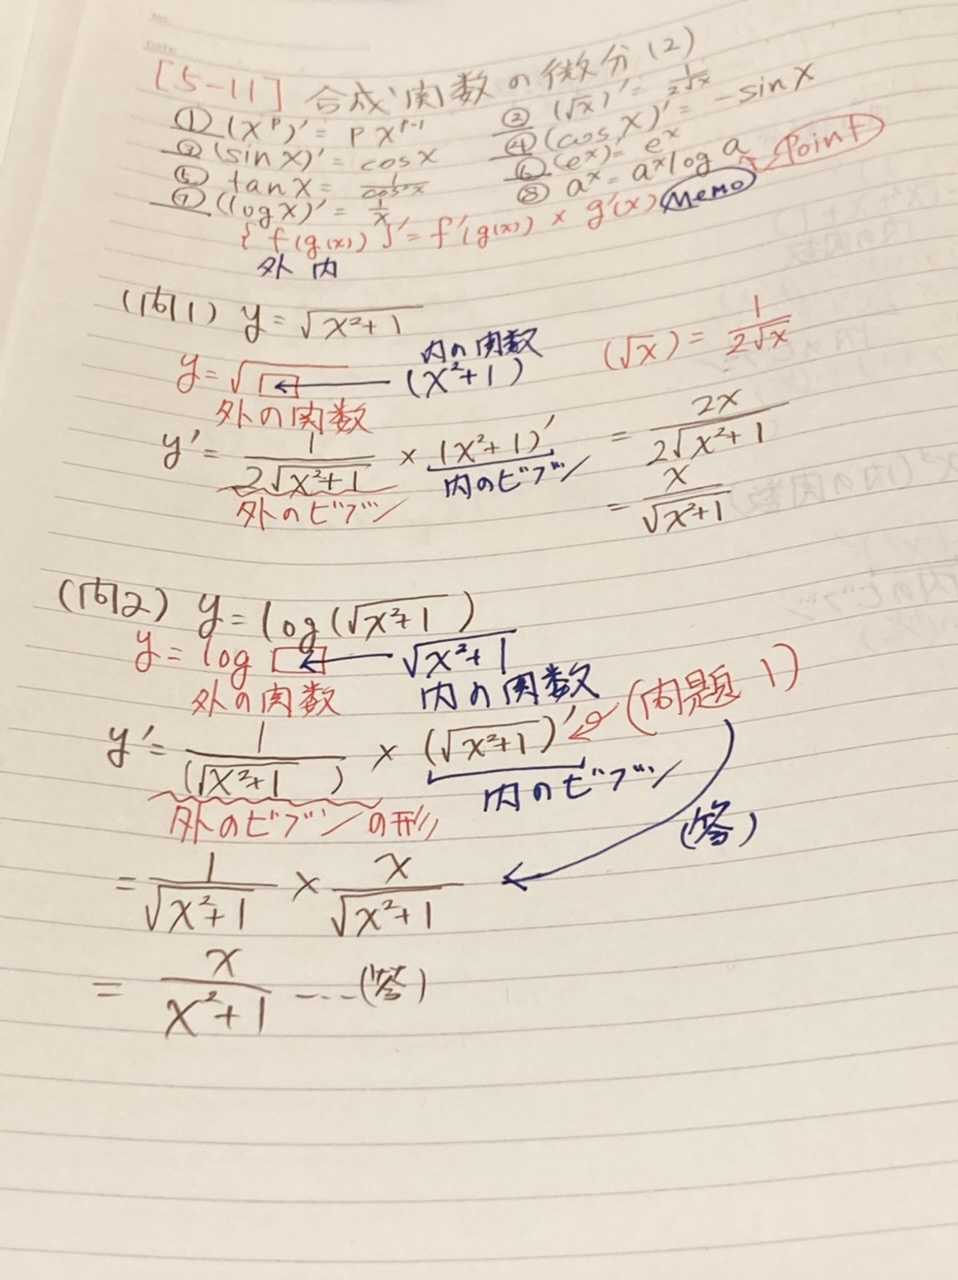 [5-11] 合成関数の微分(2)
① (x^p)' = p x^{p-1} ② (√x)' = 1/(2√x)
③ (sin x)' = cos x ④ (cos x)' = -sin x
⑤ tan x = 1/cos²x ⑥ (e^x)' = e^x
⑦ (log x)' = 1/x ⑧ a^x = a^x log a Point
{f(g(x))}' = f'(g(x)) × g'(x) Memo
外 内
(例1) y = √(x²+1)
y = √□ ← (x²+1) 内の関数 (√x) = 1/(2√x)
外の関数
y' = 1/(2√(x²+1)) × (x²+1)' = 2x/(2√(x²+1))
外のビブン 内のビブン = x/√(x²+1)
(例2) y = log(√(x²+1))
y = log □ ← √(x²+1)
外の関数 内の関数
y' = 1/(√(x²+1)) × (√(x²+1))' (問題1)
外のビブンの形 内のビブン
(答)
= 1/√(x²+1) × x/√(x²+1)
= x/(x²+1) ……(答)